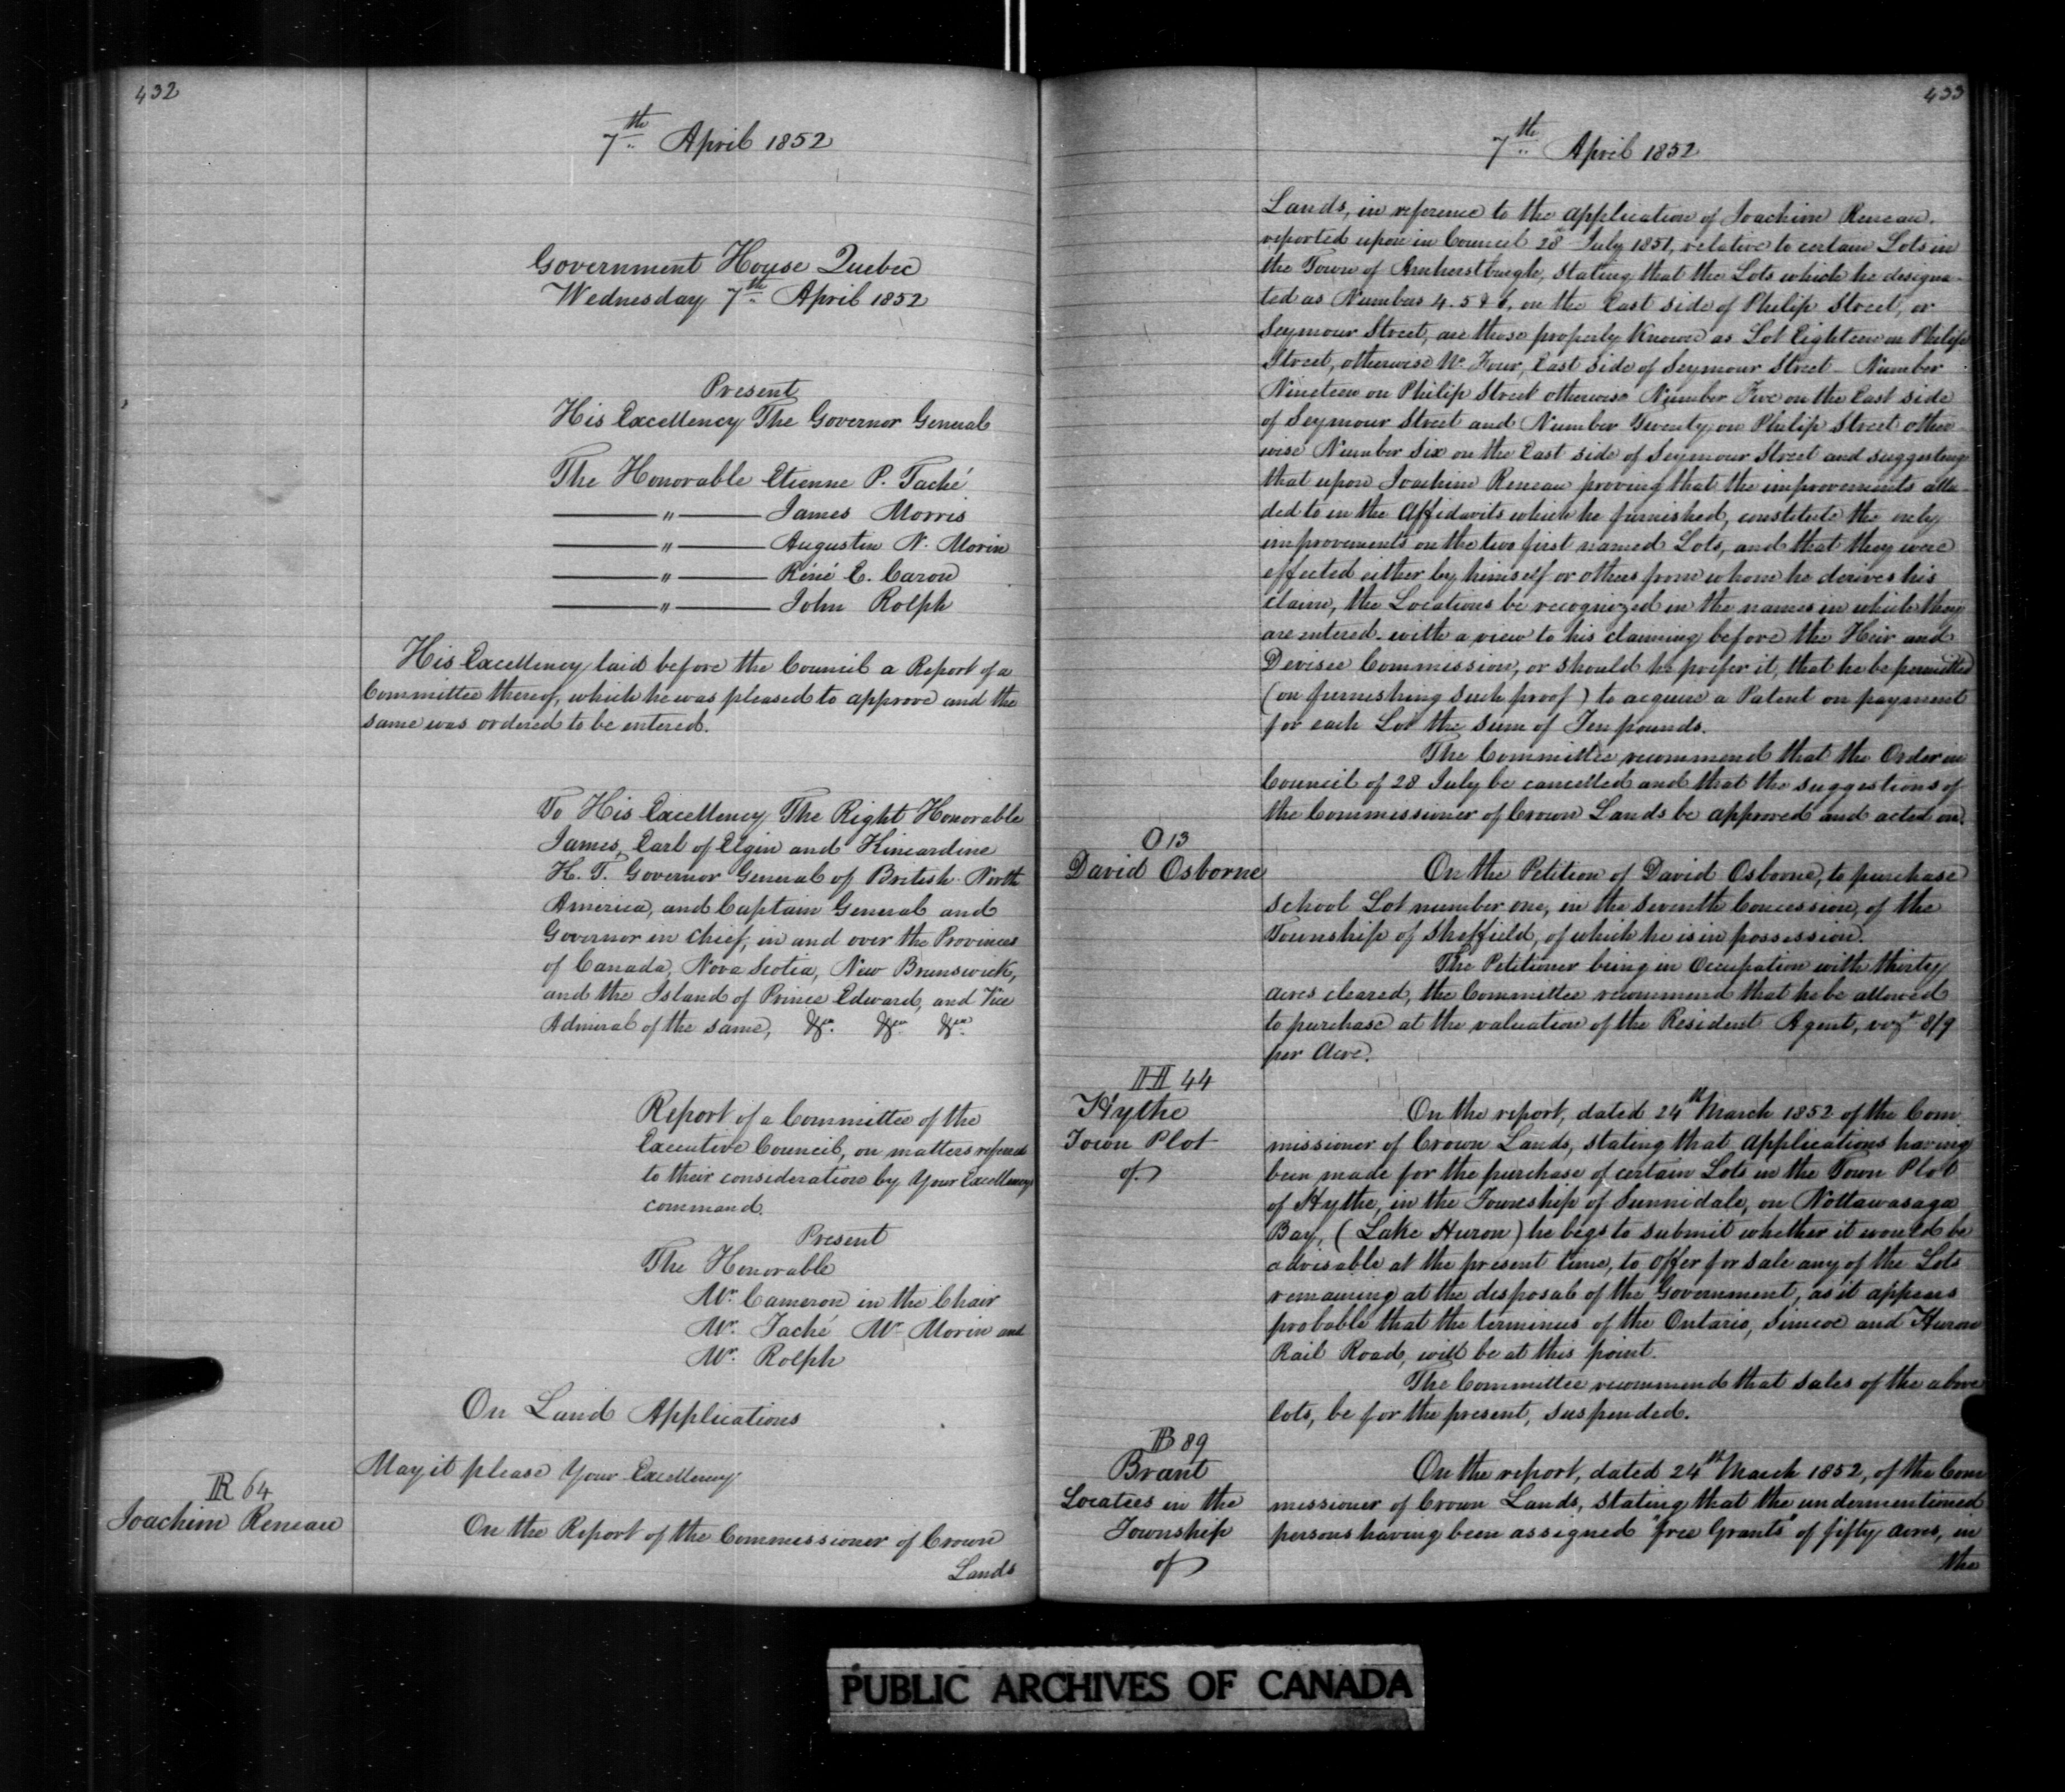 432
7th April 1852
Government House Quebec
Wednesday 7th April 1852
Present
His Excellency The Governor General
The Honorable Etienne P. Taché
——— " ——— James Morris
——— " ——— Augustin N. Morin
——— " ——— Réné E. Caron
——— " ——— John Rolph
His Excellency laid before the Council a Report of a
Committee thereof, which he was pleased to approve and the
same was ordered to be entered.
To His Excellency The Right Honorable
James, Earl of Elgin and Kincardine
K. T. Governor General of British North
America, and Captain General and
Governor in Chief, in and over the Provinces
of Canada, Nova Scotia, New Brunswick,
and the Island of Prince Edward, and Vice
Admiral of the same, &ca. &ca. &ca.
Report of a Committee of the
Executive Council, on matters referred
to their consideration by Your Excellency
command.
Present
The Honorable
Mr. Cameron in the Chair
Mr. Taché Mr. Morin and
Mr. Rolph
On Land Applications
May it please Your Excellency
R 64
Joachim Reneau
On the Report of the Commissioner of Crown
Lands
433
7th April 1852
Lands, in reference to the application of Joachim Reneau.
reported upon in Council 28th July 1851, relative to certain Lots in
the Town of Amherstburgh, stating that the Lots which he designa-
ted as Numbers 4. 5 & 6, on the East side of Philip Street, or
Seymour Street, are those properly known as Lot Eighteen on Philip
Street, otherwise No. Four, East side of Seymour Street - Number
Nineteen on Philip Street otherwise Number Five on the East side
of Seymour Street and Number Twenty on Philip Street other-
wise Number Six on the East side of Seymour Street and suggesting
that upon Joachim Reneau proving that the improvements allu-
ded to in the Affidavits which he furnished, constitute the only
improvements on the two first named Lots, and that they were
effected either by himself or others from whom he derives his
claim, the Locations be recognized in the names in which they
are entered. with a view to his claiming before the Heir and
Devisee Commission, or should he prefer it, that he be permitted
(on furnishing such proof) to acquire a Patent on payment
for each Lot the sum of Ten pounds.
The Committee recommend that the Order in
Council of 28 July be cancelled and that the suggestions of
the Commissioner of Crown Lands be approved and acted on.
O 13
David Osborne
On the Petition of David Osborne, to purchase
School Lot number one, in the seventh Concession, of the
Township of Sheffield, of which he is in possession.
The Petitioner being in Occupation with thirty
acres cleared, the Committee recommend that he be allowed
to purchase at the valuation of the Resident Agent, vizt 8/9
per Acre.
H 44
Hythe
Town Plot
of
On the report, dated 24th March 1852 of the Com
missioner of Crown Lands, stating that applications having
been made for the purchase of certain Lots in the Town Plot
of Hythe, in the Township of Sunnidale, on Nottawasaga
Bay, (Lake Huron) he begs to submit whether it would be
advisable at the present time, to offer for sale any of the Lots
remaining at the disposal of the Government, as it appears
probable that the terminus of the Ontario, Simcoe and Huron
Rail Road, will be at this point.
The Committee recommend that sales of the above
lots, be for the present, suspended.
B 89
Brant
Locatees in the
Township
of
On the report, dated 24th March 1852, of the Com
missioner of Crown Lands, stating that the undermentioned
persons having been assigned "free Grants" of fifty acres, in
the
PUBLIC ARCHIVES OF CANADA